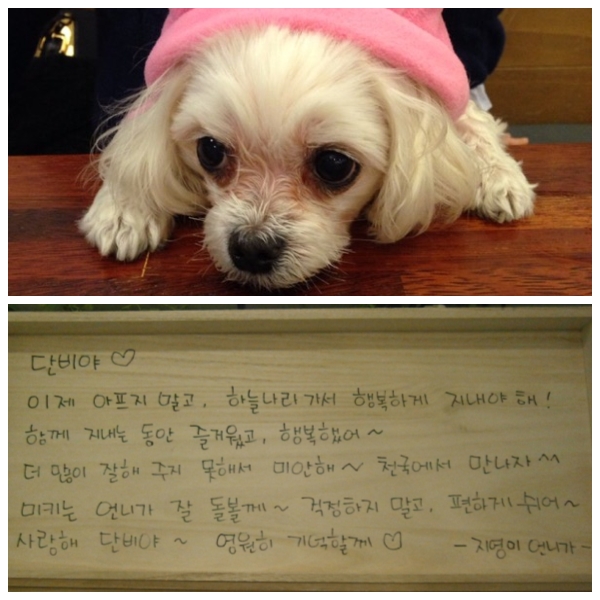 단비야 ♡
이제 아프지 말고, 하늘나라 가서 행복하게 지내야 해!
함께 지내는 동안 즐거웠고, 행복했어~
더 많이 잘해 주지 못해서 미안해~ 천국에서 만나자^^
미키는 언니가 잘 돌볼께~ 걱정하지 말고, 편하게 쉬어~
사랑해 단비야~ 영원히 기억할께 ♡ -지영이 언니가-